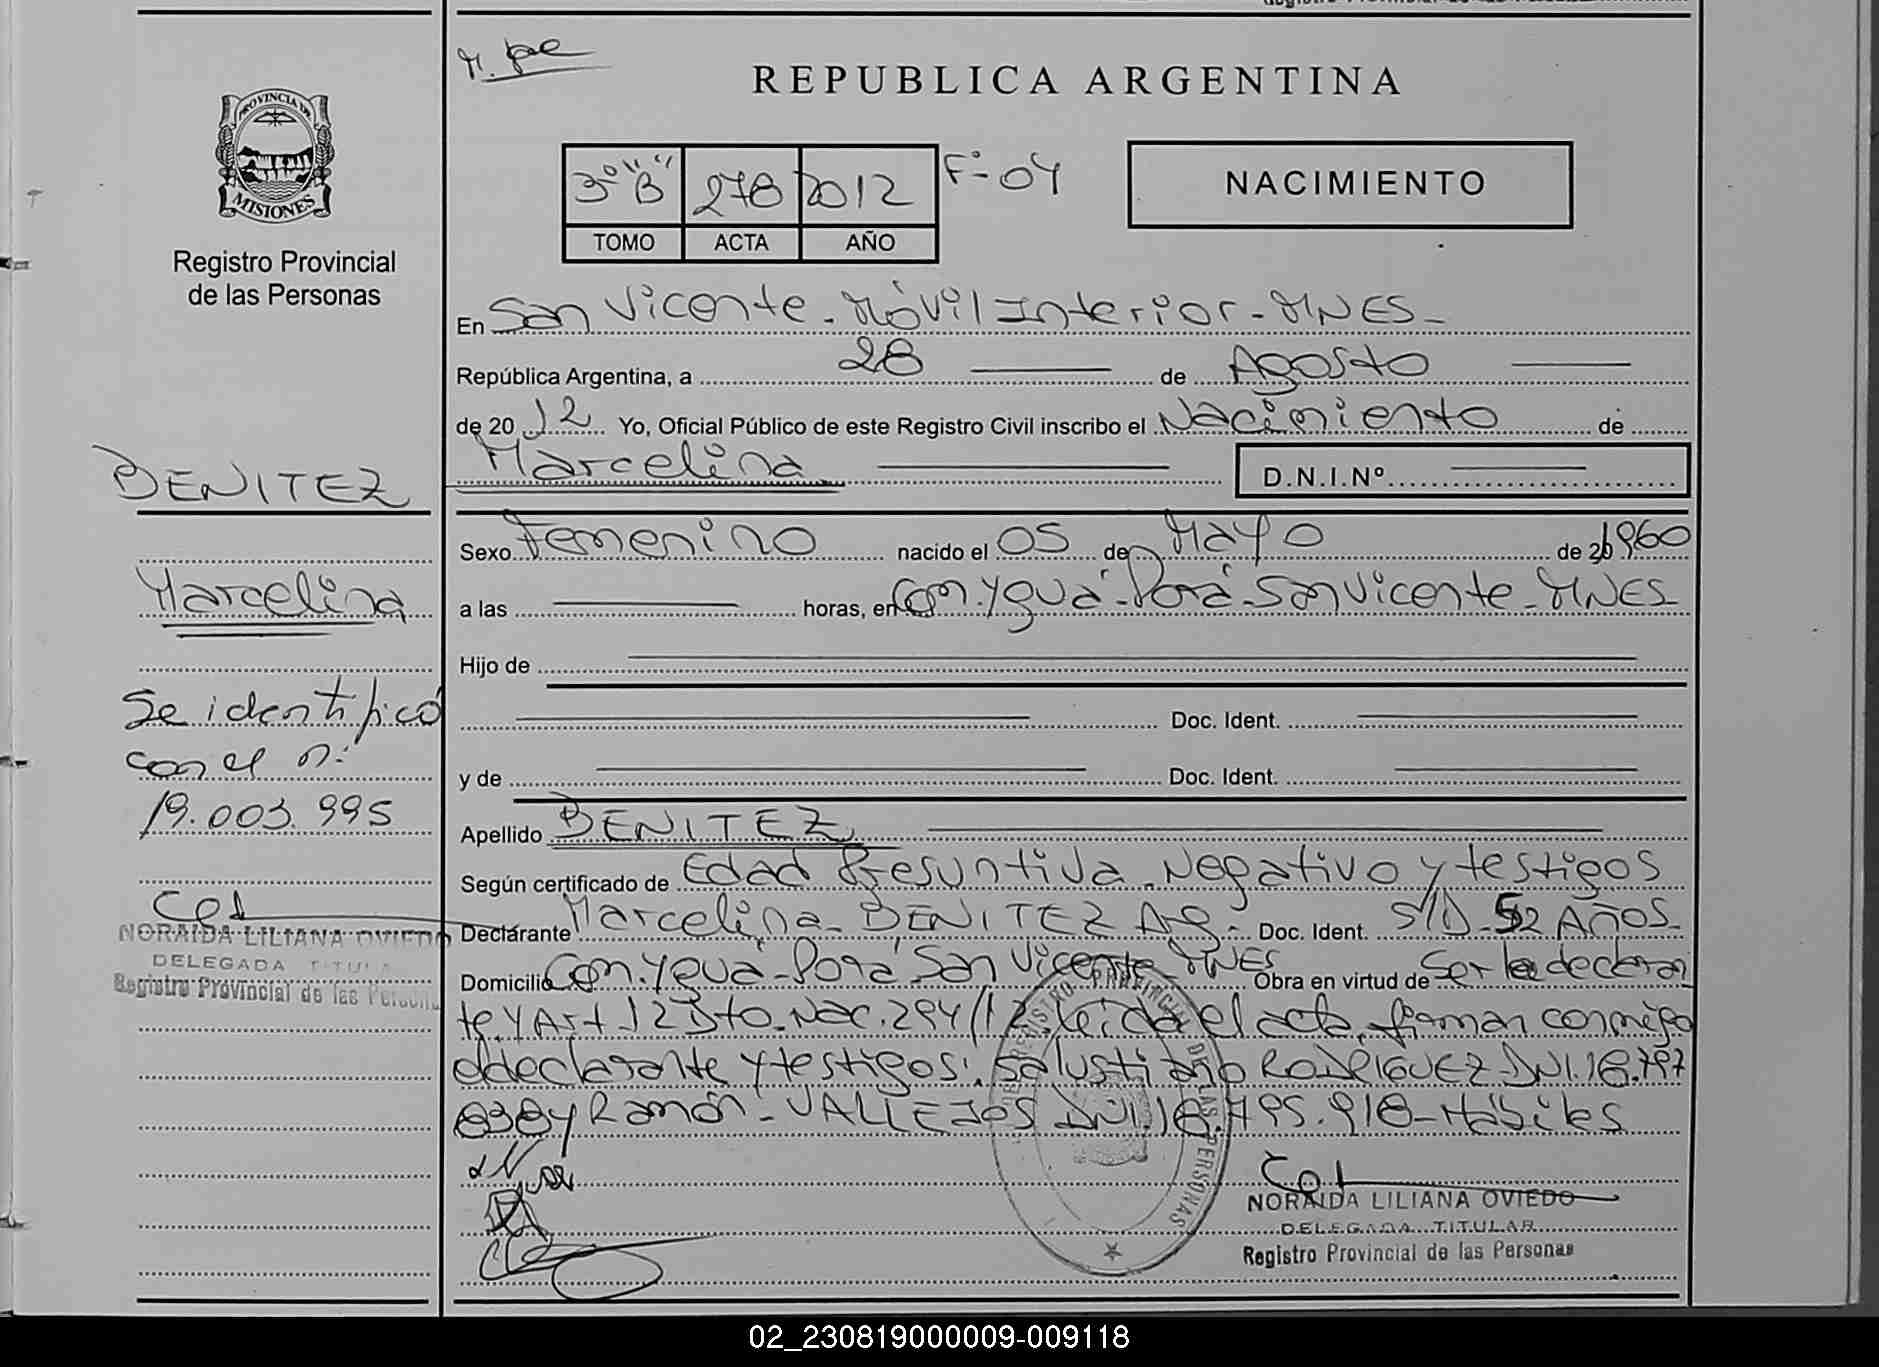 REPUBLICA ARGENTINA
PROVINCIA DE
MISIONES
Registro Provincial
de las Personas
3º "B" 278 2012 Fº 04
TOMO ACTA AÑO
NACIMIENTO
En San Vicente - Móvil Interior - MNES -
República Argentina, a 28 de Agosto
de 2012 Yo, Oficial Público de este Registro Civil inscribo el Nacimiento de
Marcelina D.N.I.Nº
BENITEZ
Marcelina
Se identificó
con el n:
19.003.995
NORAIDA LILIANA OVIEDO
DELEGADA TITULAR
Registro Provincial de las Personas
Sexo Femenino nacido el 05 de Mayo de 1960
a las horas, en Com. Yguá - Porá - San Vicente - MNES
Hijo de
Doc. Ident.
y de Doc. Ident.
Apellido BENITEZ
Según certificado de Edad Presuntiva - Negativo y testigos
Declarante Marcelina - BENITEZ Arg. Doc. Ident. S/D - 52 AÑOS -
Domicilio Com. Yguá - Porá San Vicente - MNES Obra en virtud de Ser la declaran
te y Art 12 Dto. Nac. 294/12 Leida el acta, firman conmigo
el declarante y testigos: Salustiano RODRIGUEZ DNI. 18.797
030 y Ramón - VALLEJOS DNI. 18.795.918 - Hábiles
REGISTRO PROVINCIAL DE LAS PERSONAS
NORAIDA LILIANA OVIEDO
DELEGADA TITULAR
Registro Provincial de las Personas
02_230819000009-009118